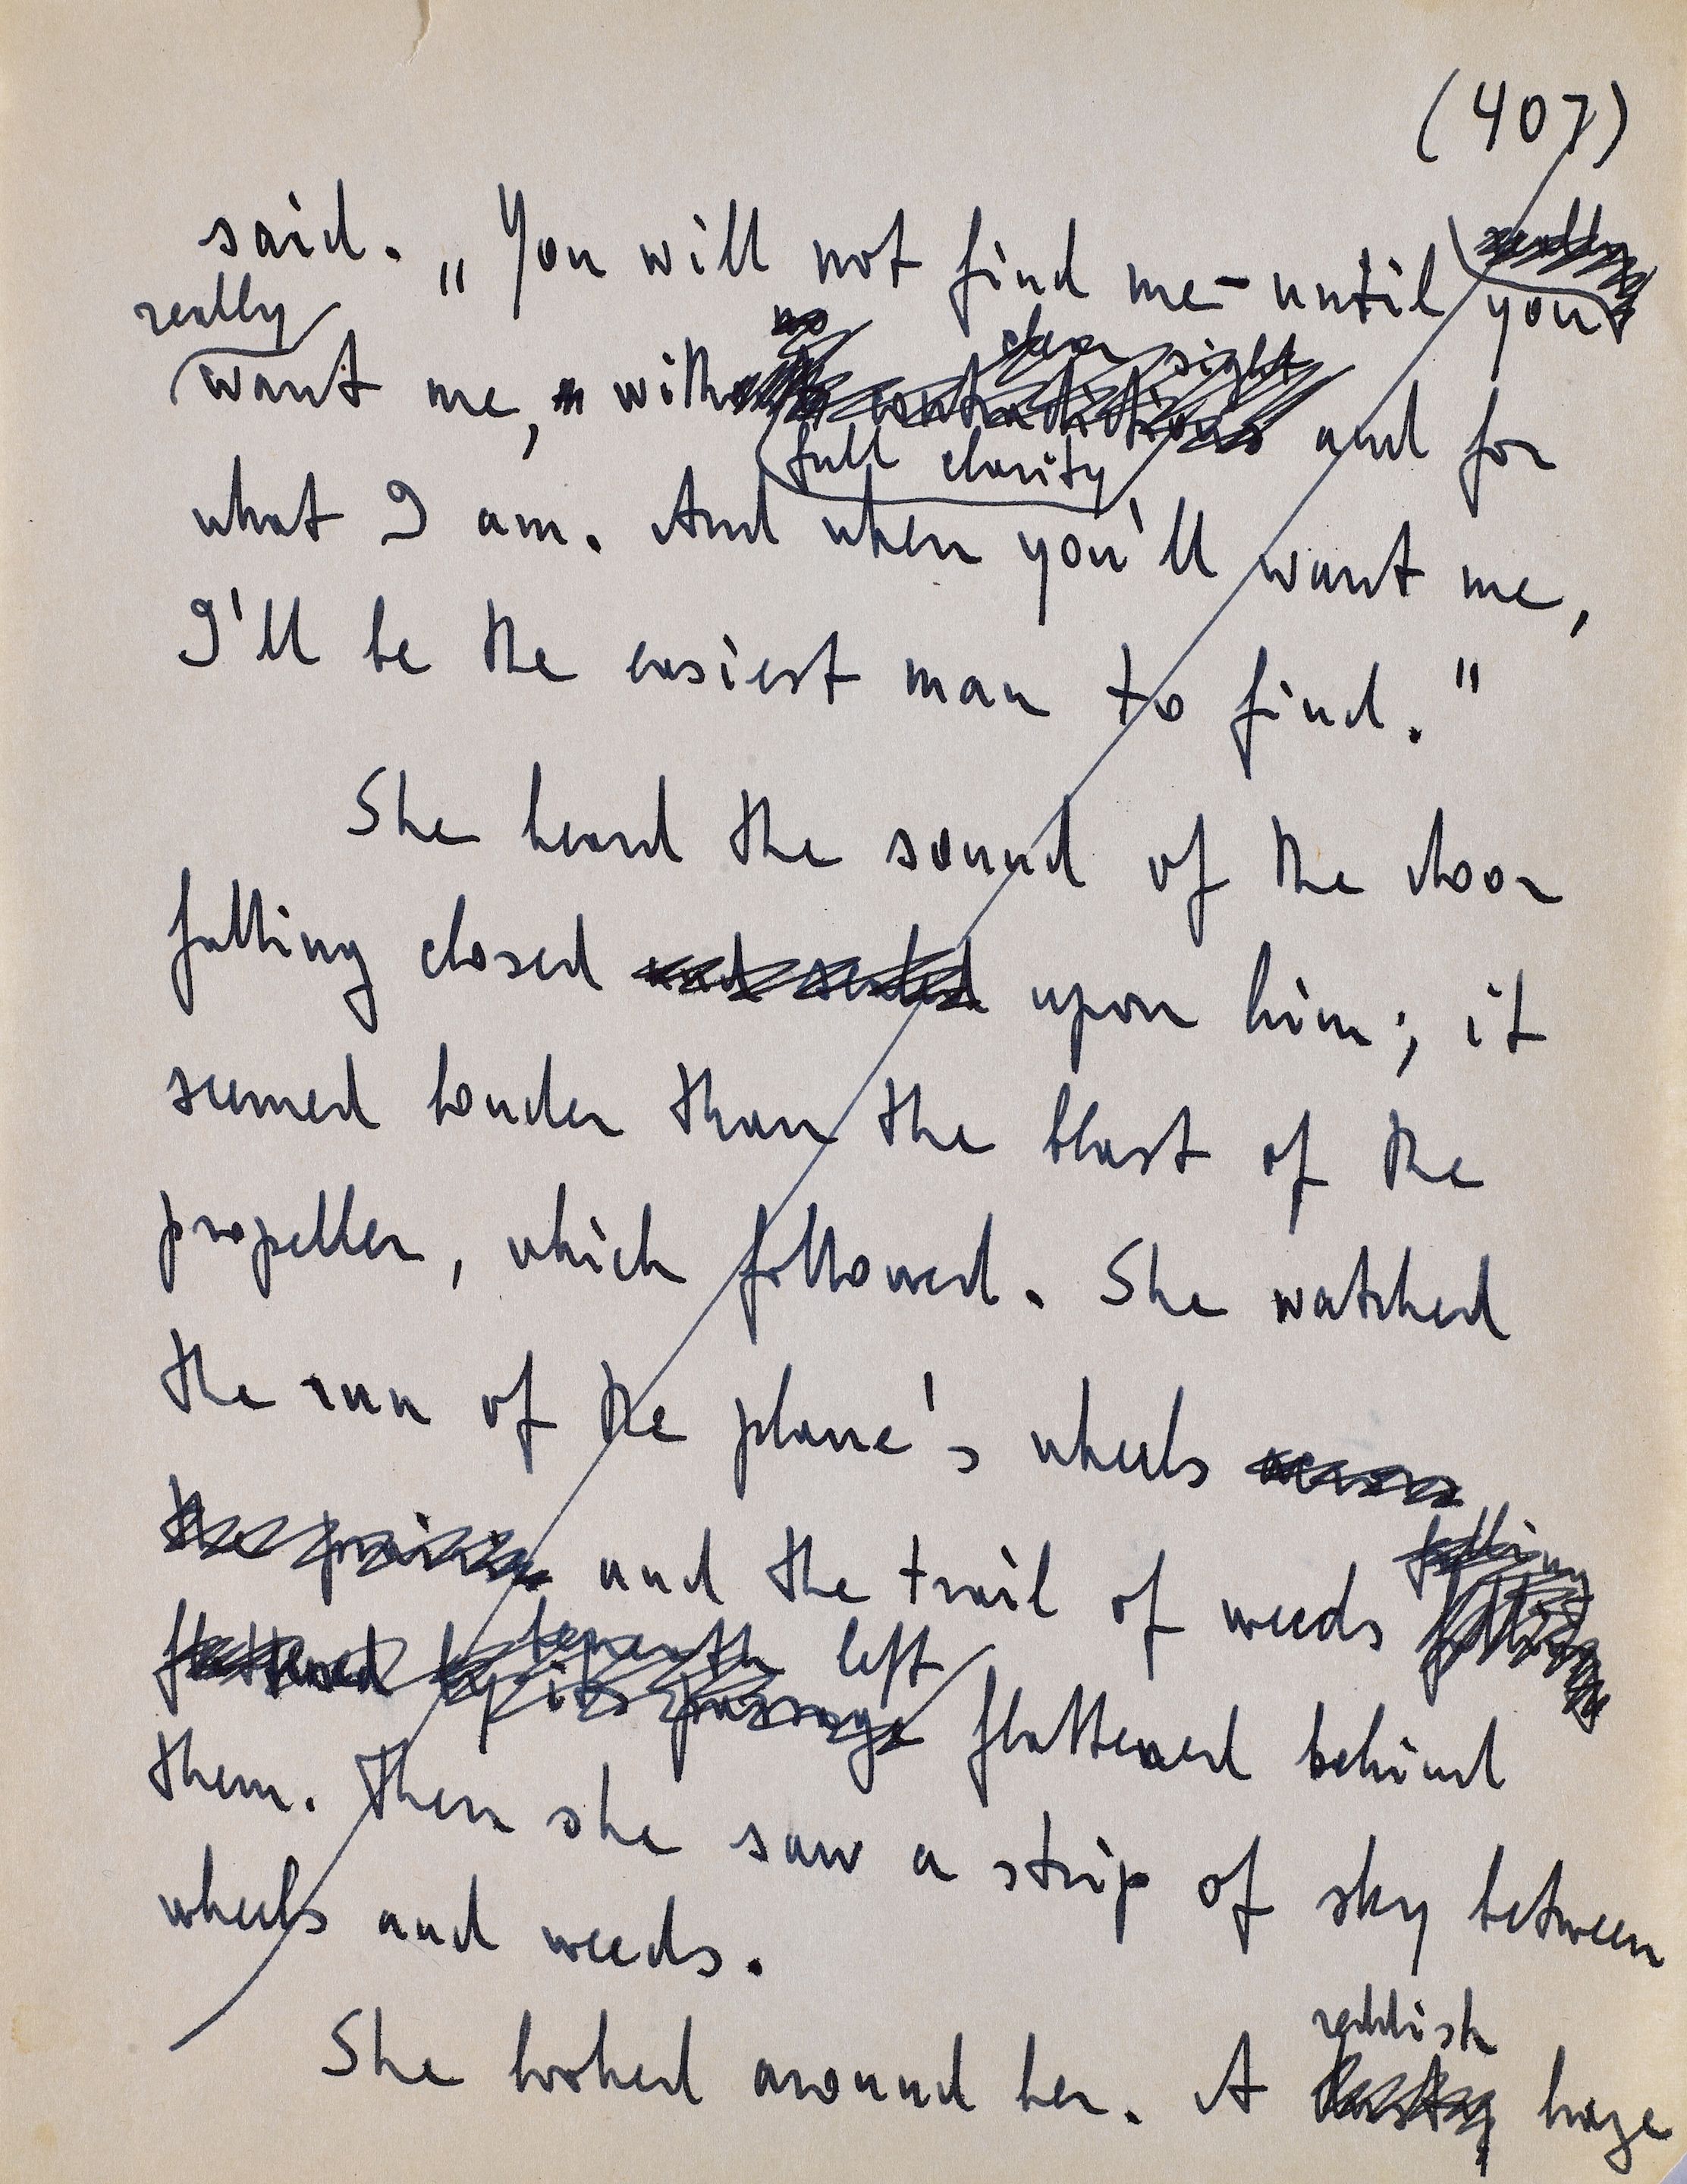 (407)
said. „You will not find me – until you
really
want me, with and for
full clarity
what I am. And when you'll want me,
I'll be the easiest man to find."
She heard the sound of the door
falling closed and sealed upon him; it
seemed louder than the blast of the
propeller, which followed. She watched
the run of the plane's wheels across
the prairie and the trail of weeds falling
left
flattened behind
them. Then she saw a strip of sky between
wheels and weeds.
reddish
She looked around her. A haze